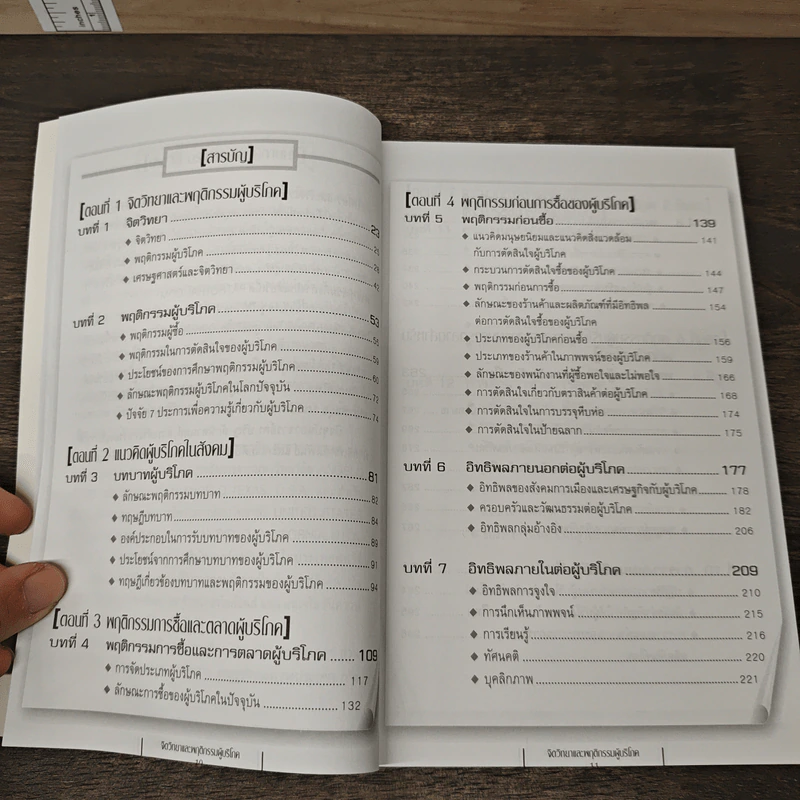 inches
[สารบัญ]
[ตอนที่ 1 จิตวิทยาและพฤติกรรมผู้บริโภค]
บทที่ 1 จิตวิทยา 23
◆ จิตวิทยา 25
◆ พฤติกรรมผู้บริโภค
◆ เศรษฐศาสตร์และจิตวิทยา
บทที่ 2 พฤติกรรมผู้บริโภค 53
◆ พฤติกรรมผู้ซื้อ
◆ พฤติกรรมในการตัดสินใจของผู้บริโภค 59
◆ ประโยชน์ของการศึกษาพฤติกรรมผู้บริโภค
◆ ลักษณะพฤติกรรมผู้บริโภคในโลกปัจจุบัน
◆ ปัจจัย 7 ประการเพื่อความรู้เกี่ยวกับผู้บริโภค 74
[ตอนที่ 2 แนวคิดผู้บริโภคในสังคม]
บทที่ 3 บทบาทผู้บริโภค 81
◆ ลักษณะพฤติกรรมบทบาท 82
◆ ทฤษฎีบทบาท 84
◆ องค์ประกอบในการรับบทบาทของผู้บริโภค 89
◆ ประโยชน์จากการศึกษาบทบาทของผู้บริโภค 91
◆ ทฤษฎีเกี่ยวข้องบทบาทและพฤติกรรมของผู้บริโภค 94
[ตอนที่ 3 พฤติกรรมการซื้อและตลาดผู้บริโภค]
บทที่ 4 พฤติกรรมการซื้อและการตลาดผู้บริโภค 109
◆ การจัดประเภทผู้บริโภค 117
◆ ลักษณะการซื้อของผู้บริโภคในปัจจุบัน 132
จิตวิทยาและพฤติกรรมผู้บริโภค
10
[ตอนที่ 4 พฤติกรรมก่อนการซื้อของผู้บริโภค]
บทที่ 5 พฤติกรรมก่อนซื้อ 139
◆ แนวคิดมนุษยนิยมและแนวคิดสิ่งแวดล้อม 141
กับการตัดสินใจผู้บริโภค
◆ กระบวนการตัดสินใจซื้อของผู้บริโภค 144
◆ พฤติกรรมก่อนการซื้อ 147
◆ ลักษณะของร้านค้าและผลิตภัณฑ์ที่มีอิทธิพล 154
ต่อการตัดสินใจซื้อของผู้บริโภค
◆ ประเภทของผู้บริโภคก่อนซื้อ 156
◆ ประเภทของร้านค้าในภาพพจน์ของผู้บริโภค 159
◆ ลักษณะของพนักงานที่ผู้ซื้อพอใจและไม่พอใจ 166
◆ การตัดสินใจเกี่ยวกับตราสินค้าต่อผู้บริโภค 168
◆ การตัดสินใจในการบรรจุหีบห่อ 174
◆ การตัดสินใจในป้ายฉลาก 175
บทที่ 6 อิทธิพลภายนอกต่อผู้บริโภค 177
◆ อิทธิพลของสังคมการเมืองและเศรษฐกิจกับผู้บริโภค 178
◆ ครอบครัวและวัฒนธรรมต่อผู้บริโภค 182
◆ อิทธิพลกลุ่มอ้างอิง 206
บทที่ 7 อิทธิพลภายในต่อผู้บริโภค 209
◆ อิทธิพลการจูงใจ 210
◆ การนึกเห็นภาพพจน์ 215
◆ การเรียนรู้ 216
◆ ทัศนคติ 220
◆ บุคลิกภาพ 221
จิตวิทยาและพฤติกรรมผู้บริโภค
11